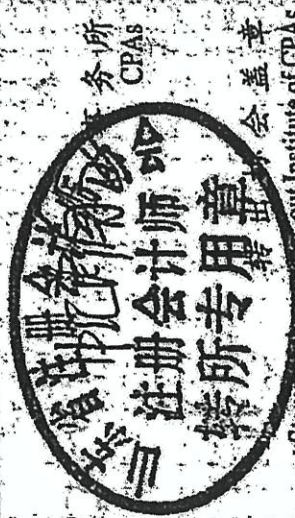 务所
CPAs
省注册会计师协会
注册会计师
转所专用章
会盖章
out Institute of CPAs